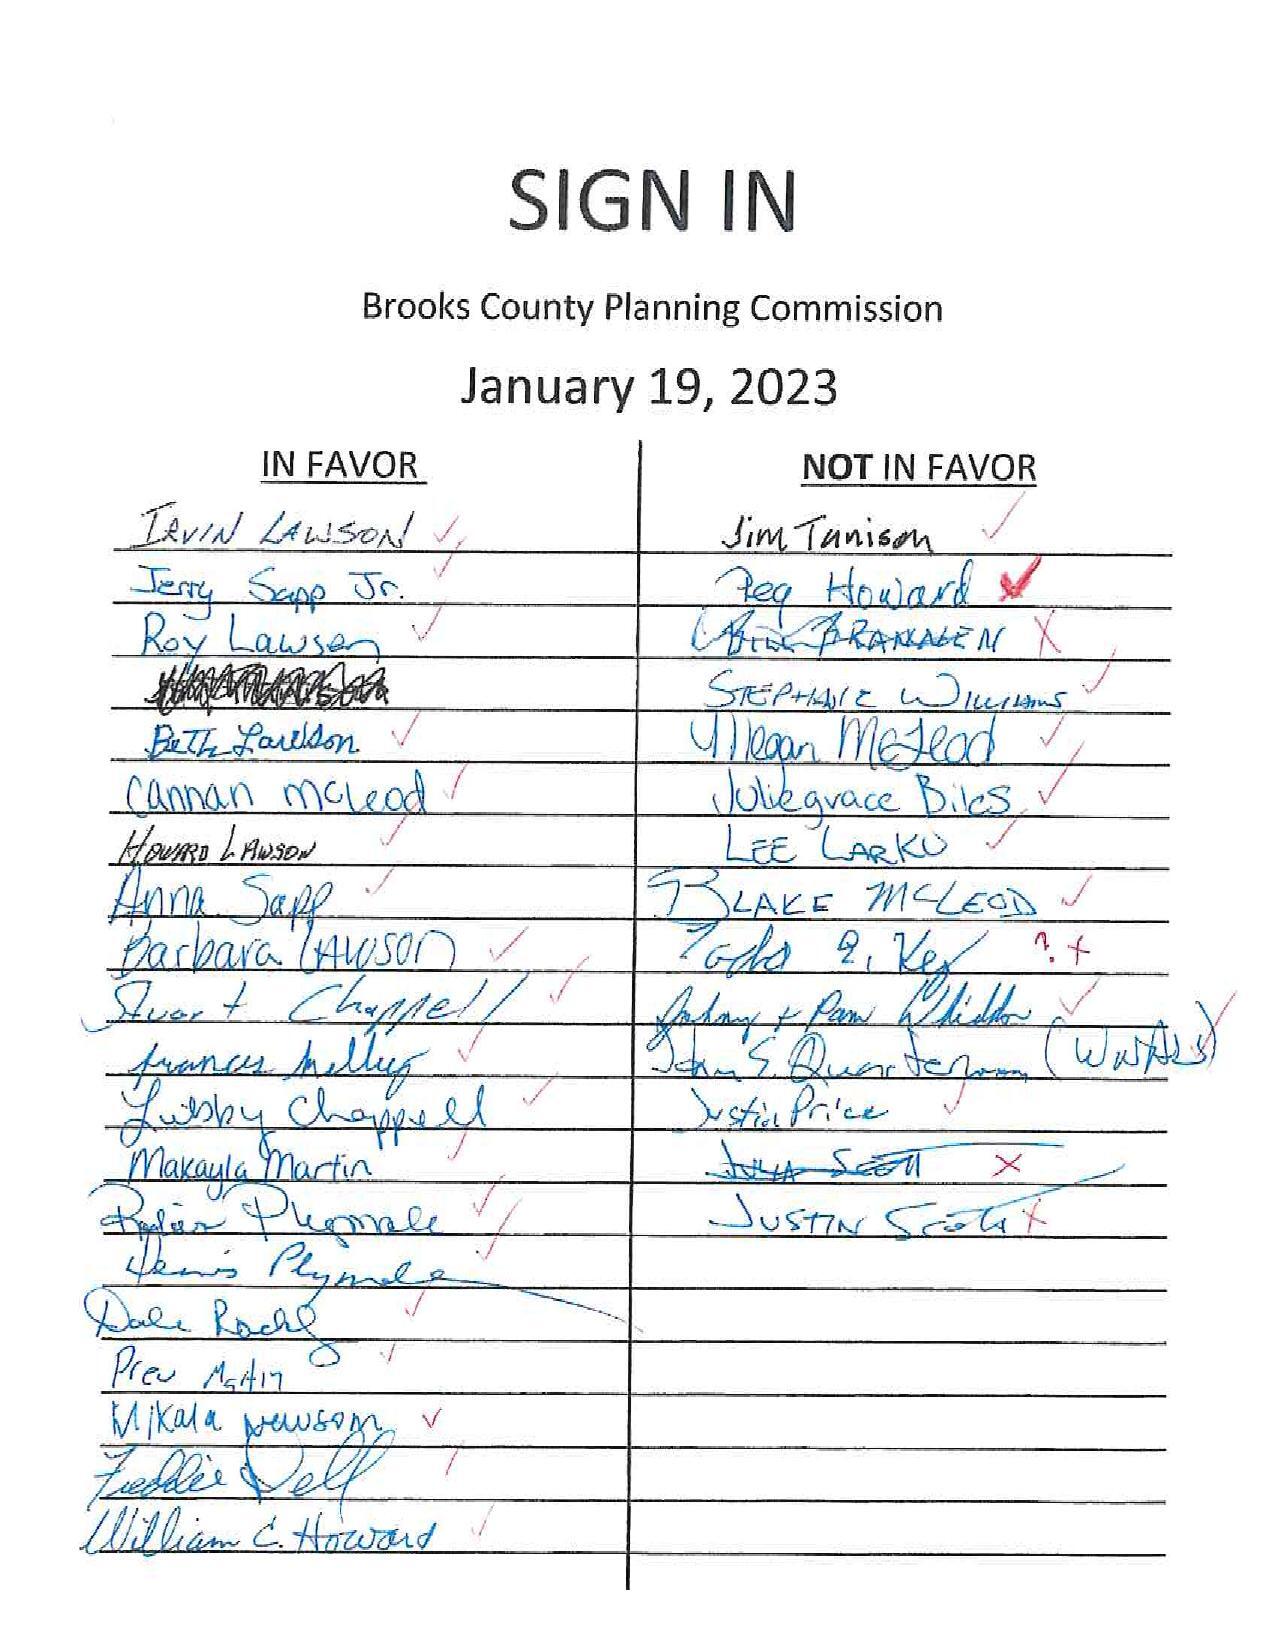 SIGN IN
Brooks County Planning Commission
January 19, 2023
IN FAVOR
IRVIN LAWSON
Jerry Sapp Jr.
Roy Lawson
BETH Lawson
Cannan McLeod
HOWARD LAWSON
Anna Sapp
Barbara LAWSON
Stuart Chappell
Frances
Chappell
Makayla Martin
Plymale
Plymale
Dale
Martin
Mikala Newsom
Freddie
William C. Howard
NOT IN FAVOR
Jim Tunison
Peg Howard
BRANALEN
STEPHANIE WILLIAMS
Megan McLeod
Juliegrace Biles
LEE LARKO
BLAKE MCLEOD
Key
+ Pam
John S. Quarterman (WWALS)
Justin Price
SCOTT
JUSTIN SCOTT